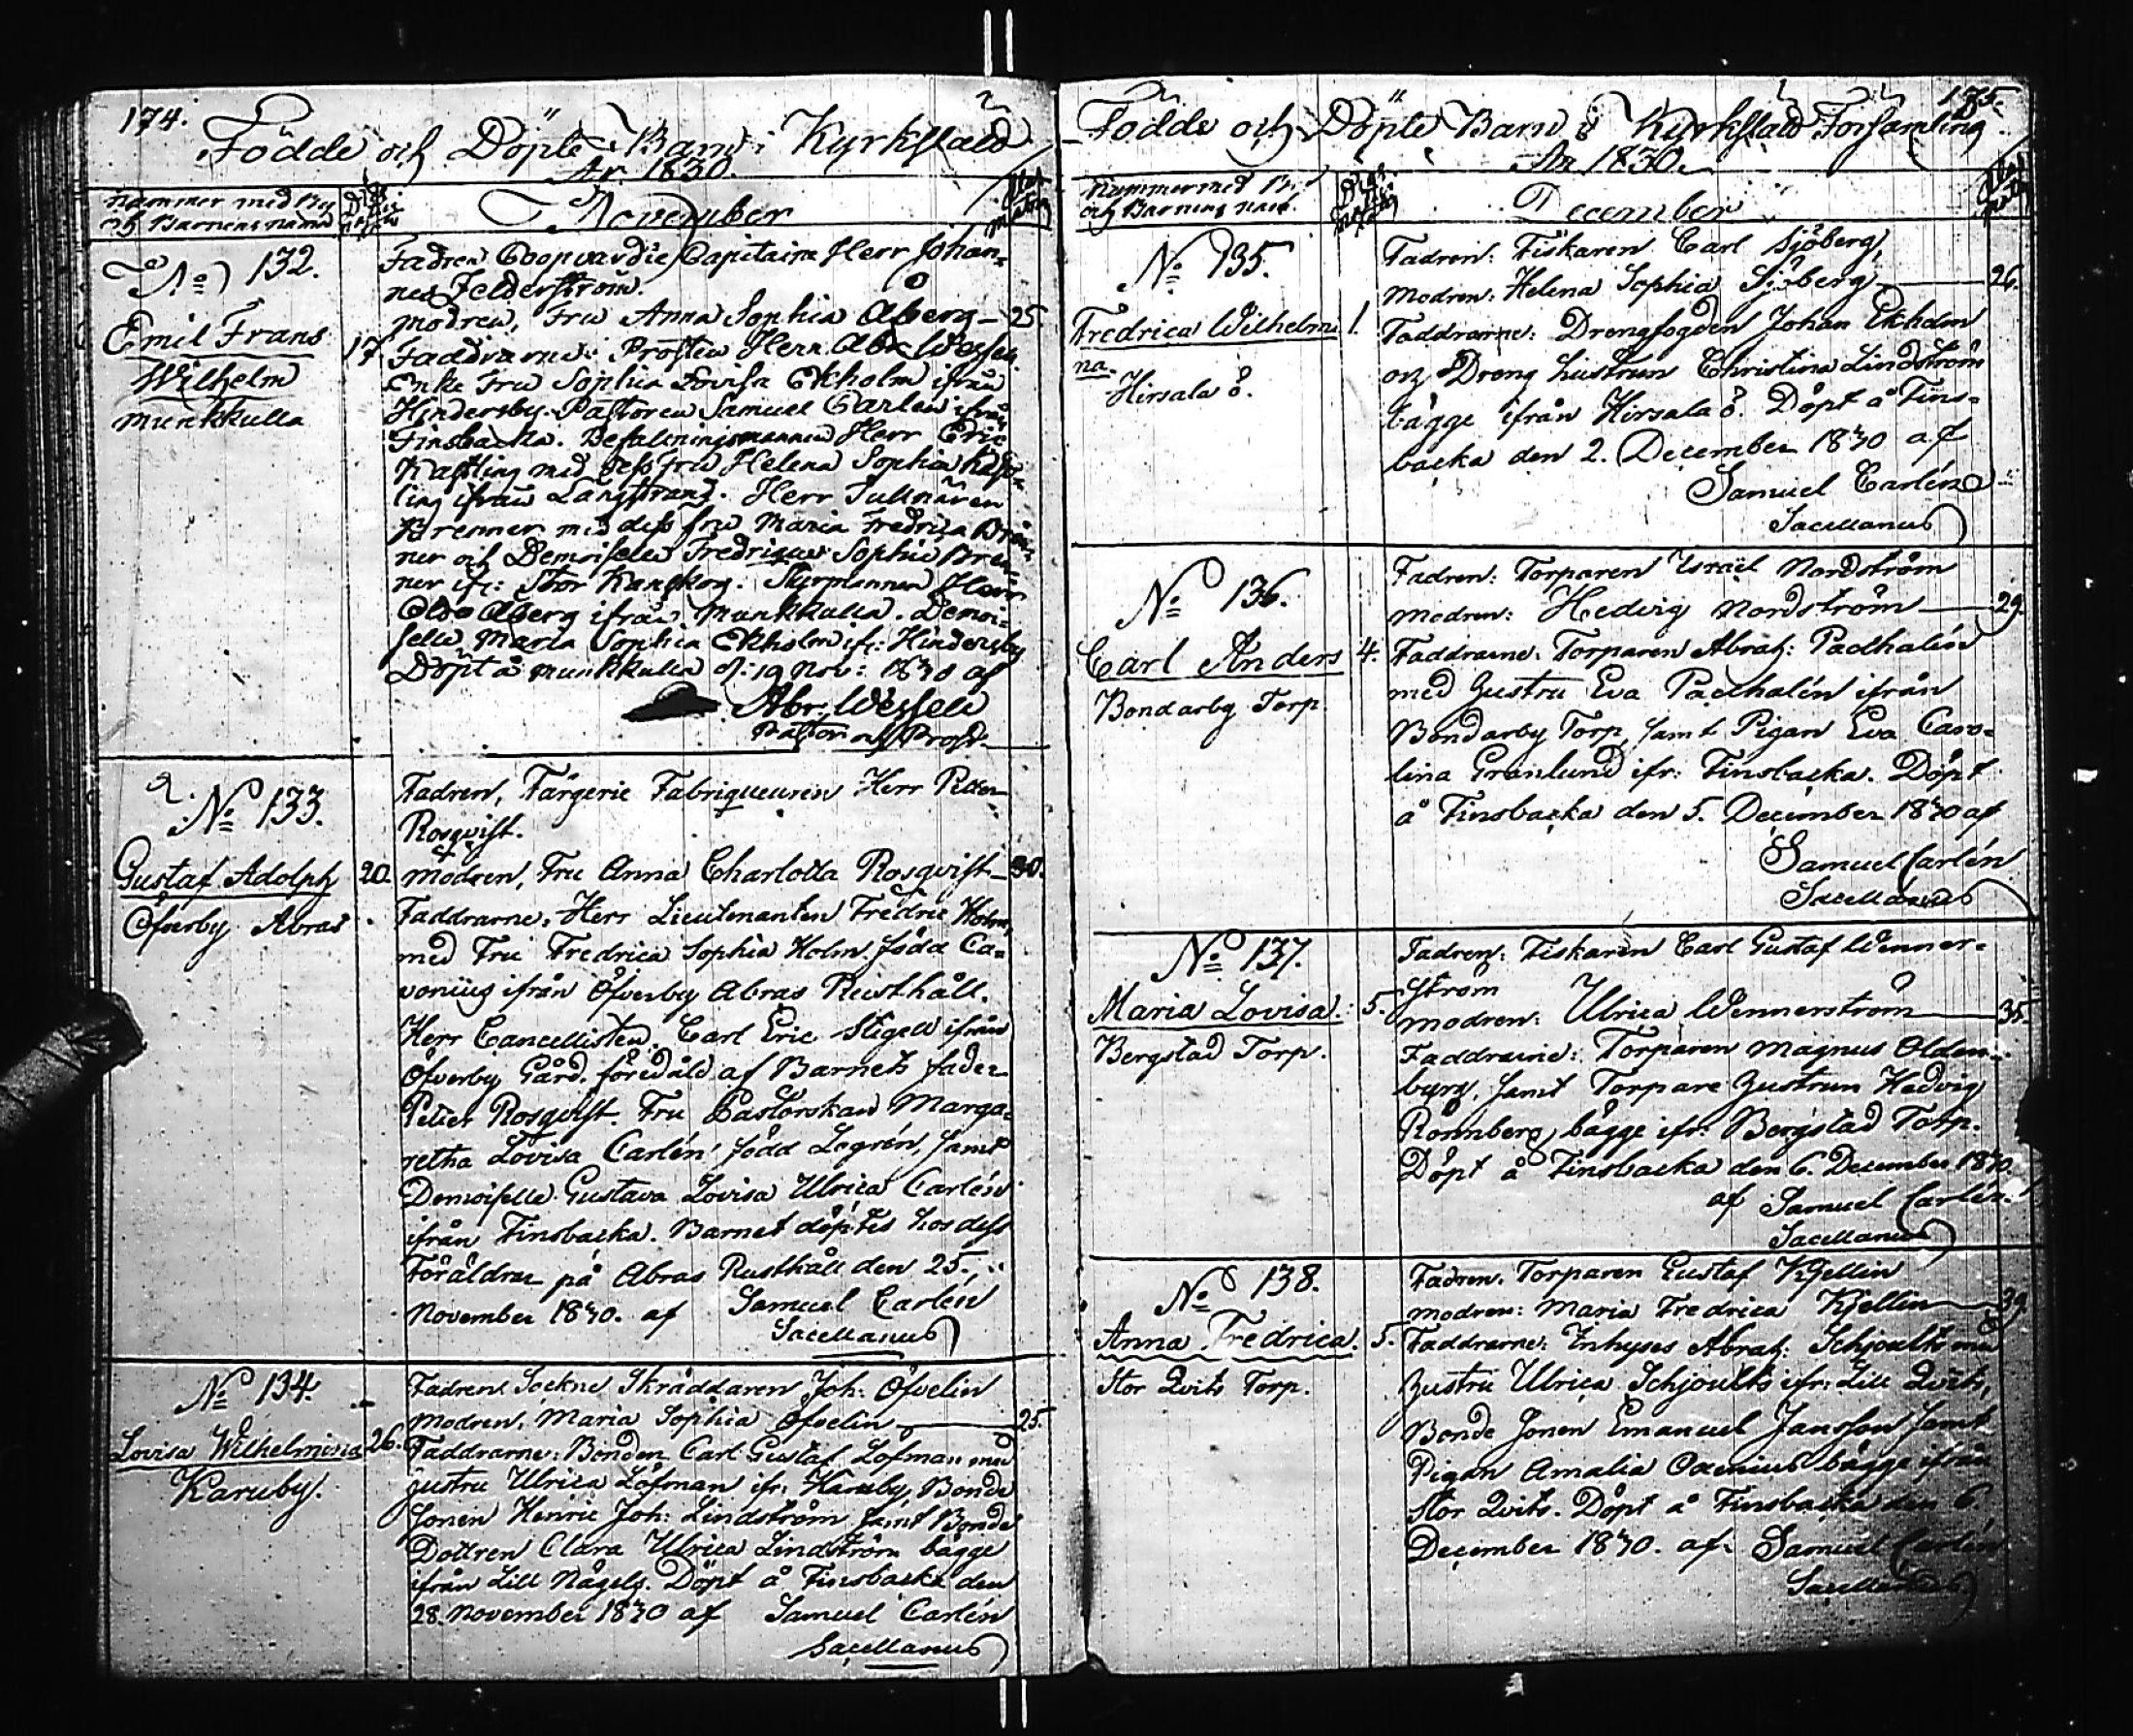 174.
Födde och Döpte Barn i Kyrkslätt
År 1830.
Nummer med By
och Barnens namn
November
No 132.
Emil Frans
Wilhelm
Munkkulla
17
Fadren Coopvardie Capitaine Herr Johan-
nes Zelderström.
Modren, Fru Anna Sophia Åberg — 25.
Faddrarne: Prosten Herr Abr Wessell
Enke Fru Sophia Lovisa Ekholm ifrån
Hindersby. Pastoren Samuel Carlén ifrån
Finsbacka. Befallningsmannen Herr Eric
Kastling med dess fru Helena Sophia Kast-
ling ifrån Långstrand. Herr
Brenner med dess fru Maria Fredrica Bren-
ner och Demoiselle Fredrique Sophia Bren-
ner ifr: Stor Kanskog. Styrmannen Herr
Åberg ifrån Munkkulla. Demoi-
selle Maria Sophia Ekholm ifr: Hindersby
Döpt å Munkkulla d: 19 Nov: 1830 af
Abr: Wessell
Pastor och Prost.
No 133.
Gustaf Adolph
Öfverby Abras
20.
Fadren, Färgerie Fabriqueuren Herr Petter
Rosqvist.
Modren, Fru Anna Charlotta Rosqvist — 30.
Faddrarne, Herr Lieutenanten Fredric Holm,
med Fru Fredrica Sophia Holm född Ca-
vonius ifrån Öfverby Abras Rusthåll.
Herr Cancellisten Carl Eric Stigell ifrån
Öfverby Gård. föredåld af Barnets fader
Petter Rosqvist. Fru Pastorskan Marga-
retha Lovisa Carlén född Lagrén, samt
Demoiselle Gustava Lovisa Ulrica Carlén
ifrån Finsbacka. Barnet döptes hos dess
Föräldrar på Abras Rusthåll den 25.
November 1830. af Samuel Carlén
Sacellanus
No 134.
Lovisa Wilhelmina
Karuby.
26.
Fadren Sockne Skräddaren Joh: Öfvelin
Modren, Maria Sophia Öfvelin — 25.
Faddrarne: Bonden Carl Gustaf Löfman med
hustru Ulrica Löfman ifr: Karuby, Bonde
Sonen Henric Joh: Lindström samt Bonde
Dottren Clara Ulrica Lindström bägge
ifrån Lill Någels. Döpt å Finsbacka den
28. November 1830 af Samuel Carlén
Sacellanus
175.
Födde och Döpte Barn i Kyrkslätt Församling
År 1830.
Nummer med By
och Barnens namn.
December
No 135.
Fredrica Wilhelmi
na.
Hirsala ö.
1.
Fadren: Fiskaren Carl Sjöberg,
Modren: Helena Sophia Sjöberg — 26.
Faddrarne: Drengfogden Johan Ekholm
och Dreng hustrun Christina Lindström
bägge ifrån Hirsala ö. Döpt å Fins-
backa den 2. December 1830 af
Samuel Carlén
Sacellanus
No 136.
Carl Anders
Bondarby Torp
4.
Fadren: Torparen Israel Nordström
Modren: Hedvig Nordström — 29.
Faddrarne: Torparen Abrah: Padhalén
med hustru Eva Padhalén ifrån
Bondarby Torp, samt Pigan Eva Caro-
lina Granlund ifr: Finsbacka. Döpt
å Finsbacka den 5. December 1830 af
Samuel Carlén
Sacellanus
No 137.
Maria Lovisa.
Bergstad Torp.
5.
Fadren: Fiskaren Carl Gustaf Wenner-
ström
Modren: Ulrica Wennerström — 35.
Faddrarne: Torparen Magnus Olden-
burg, samt Torpare hustrun Hedvig
Rönnberg, bägge ifr: Bergstad Torp.
Döpt å Finsbacka den 6. December 1830.
af Samuel Carlén.
Sacellanus
No 138.
Anna Fredrica.
Stor Qvits Torp.
5.
Fadren. Torparen Gustaf Kjellin
Modren: Maria Fredrica Kjellin — 39.
Faddrarne: Inhyses Abrah: Schjoults med
hustru Ulrica Schjoults ifr: Lill Qvits,
Bonde Sonen Emanuel Jansson samt
Pigan Amalia bägge ifrån
Stor Qvits. Döpt å Finsbacka den 6.
December 1830. af Samuel Carlén
Sacellanus